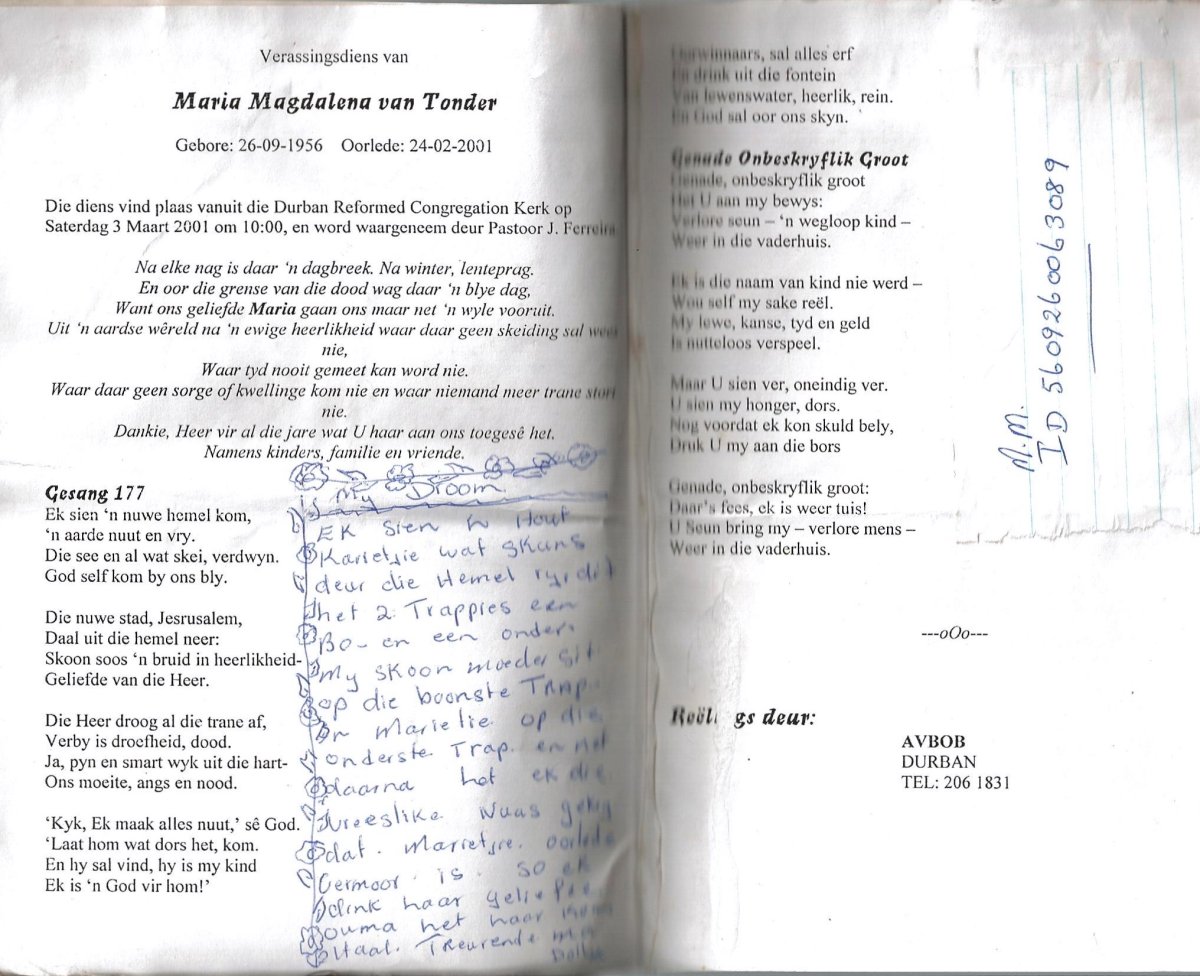 Verassingsdiens van
Maria Magdalena van Tonder
Gebore: 26-09-1956 Oorlede: 24-02-2001
Die diens vind plaas vanuit die Durban Reformed Congregation Kerk op
Saterdag 3 Maart 2001 om 10:00, en word waargeneem deur Pastoor J. Ferreira
Na elke nag is daar ‘n dagbreek. Na winter, lenteprag.
En oor die grense van die dood wag daar ‘n blye dag,
Want ons geliefde Maria gaan ons maar net ‘n wyle vooruit.
Uit ‘n aardse wêreld na ‘n ewige heerlikheid waar daar geen skeiding sal wees
nie,
Waar tyd nooit gemeet kan word nie.
Waar daar geen sorge of kwellinge kom nie en waar niemand meer trane stort
nie.
Dankie, Heer vir al die jare wat U haar aan ons toegesê het.
Namens kinders, familie en vriende.
Gesang 177
Ek sien ‘n nuwe hemel kom,
‘n aarde nuut en vry.
Die see en al wat skei, verdwyn.
God self kom by ons bly.
Die nuwe stad, Jesrusalem,
Daal uit die hemel neer:
Skoon soos ‘n bruid in heerlikheid-
Geliefde van die Heer.
Die Heer droog al die trane af,
Verby is droefheid, dood.
Ja, pyn en smart wyk uit die hart-
Ons moeite, angs en nood.
‘Kyk, Ek maak alles nuut,’ sê God.
‘Laat hom wat dors het, kom.
En hy sal vind, hy is my kind
Ek is ‘n God vir hom!’
is My Droom
EK sien 'n Hout
Karietjie wat skuns
deur die Hemel ry. dit
het 2 Trappies een
Bo- en een onder.
My skoon moeder sit
op die boonste TRAP.
En Marielie op die
onderste Trap. en net
daarna het ek die
Vreeslike Nuus gekry
dat. Marietjie. oorlede
Vermoor is. so ek
dink haar geliefde
ouma het haar kom
Haal. Treurende
sal alles erf
En drink uit die fontein
Van lewenswater, heerlik, rein.
En God sal oor ons skyn.
Genade Onbeskryflik Groot
Genade, onbeskryflik groot
Het U aan my bewys:
Verlore seun – ‘n wegloop kind –
Weer in die vaderhuis.
Ek is die naam van kind nie werd –
Wou self my sake reël.
My lewe, kanse, tyd en geld
Is nutteloos verspeel.
Maar U sien ver, oneindig ver.
U sien my honger, dors.
Nog voordat ek kon skuld bely,
Druk U my aan die bors
Genade, onbeskryflik groot:
Daar’s fees, ek is weer tuis!
U Seun bring my – verlore mens –
Weer in die vaderhuis.
---oOo---
deur:
AVBOB
DURBAN
TEL: 206 1831
M.M.
ID 5609260063089